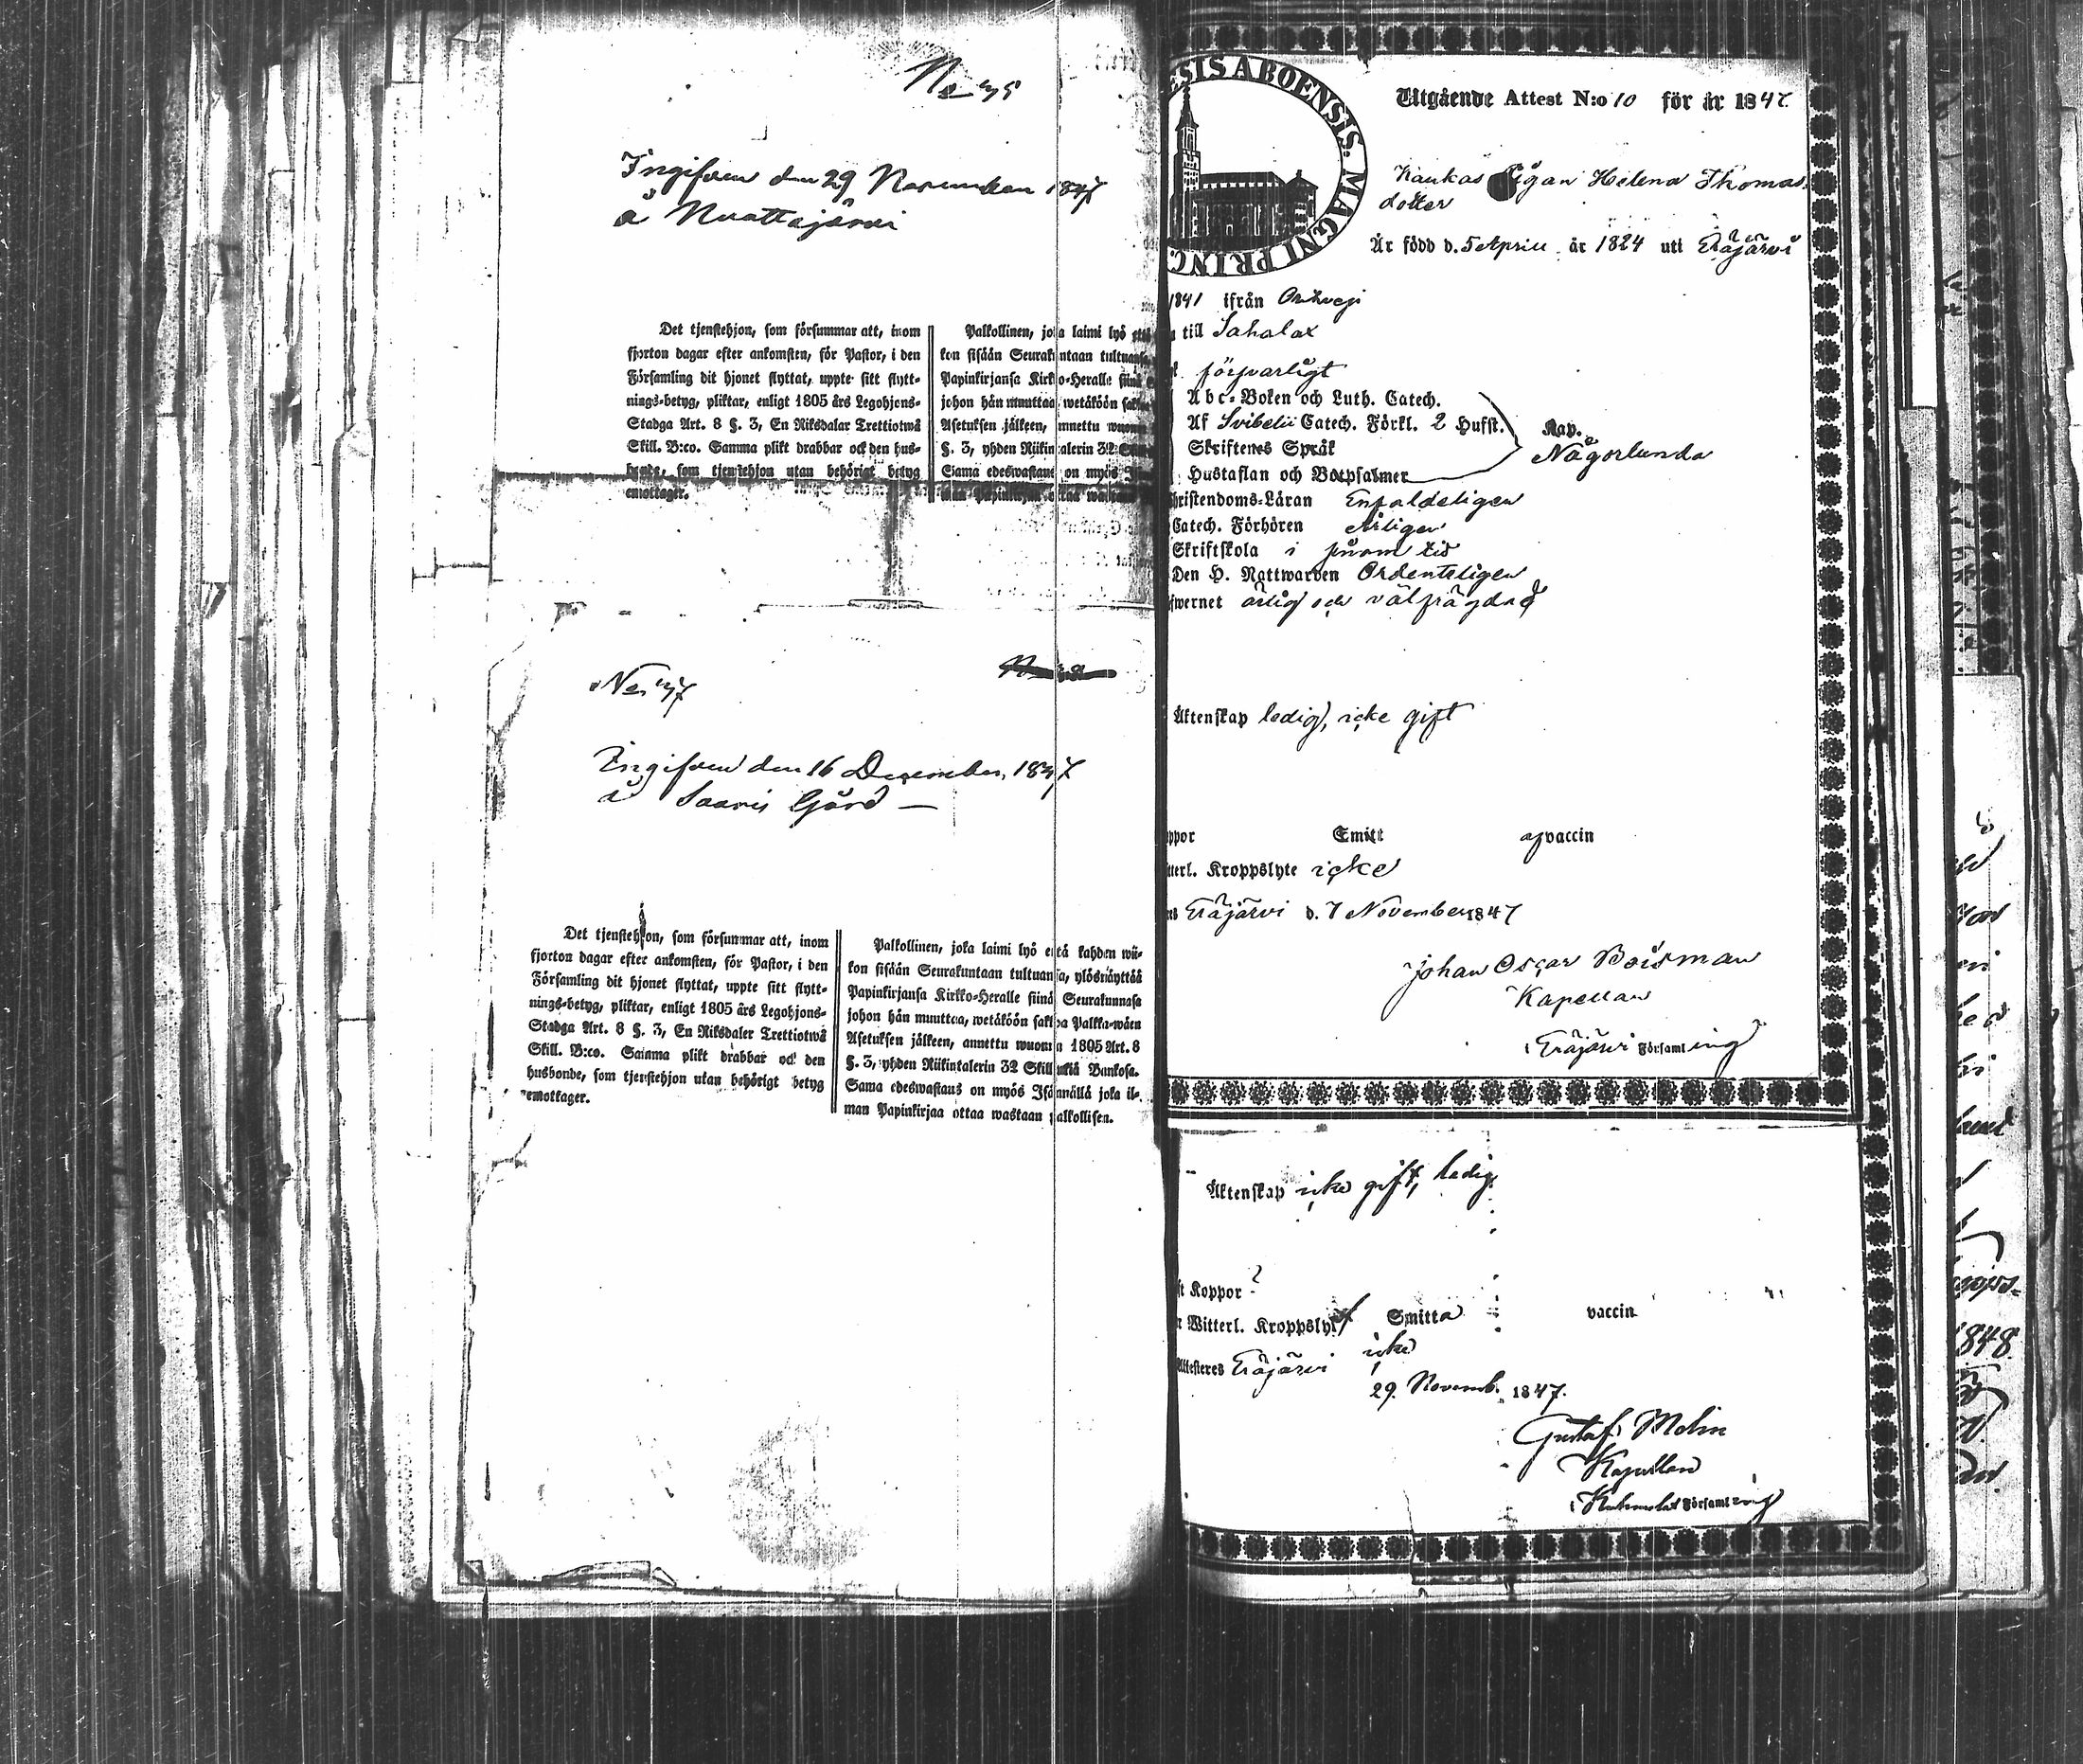 No 45
Ingifven den 29 November 1847
å Nuattajärvi
Det tjenstehjon, som försummar att, inom
fjorton dagar efter ankomsten, för Pastor, i den
Församling dit hjonet flyttat, uppte sitt flytt-
nings-betyg, pliktar, enligt 1805 års Legohjons-
Stadga Art. 8 §. 3, En Riksdalar Trettiotwå
Skill. B:co. Samma plikt drabbar och den hus-
bonde, som tjenstehjon utan behörigt betyg
emottager.
Palkollinen, joka laimi lyö että
kon sisään Seurakuntaan tultuansa
Papinkirjansa Kirkko-Heralle siinä
johon hän muuttaa, wetäköön sakkoa
Asetuksen jälkeen, annettu wuonna
§. 3, yhden Riikintalerin 32
Sama edeswastaus on myös
man Papinkirjaa ottaa
No 47
Ingifven den 16 December 1847
å Saaris Gård —
Det tjenstehjon, som försummar att, inom
fjorton dagar efter ankomsten, för Pastor, i den
Församling dit hjonet flyttat, uppte sitt flytt-
nings-betyg, pliktar, enligt 1805 års Legohjons-
Stadga Art. 8 §. 3, En Riksdaler Trettiotwå
Skill. B:co. Samma plikt drabbar och den
husbonde, som tjenstehjon utan behörigt betyg
emottager.
Palkollinen, joka laimi lyö että kahden wii-
kon sisään Seurakuntaan tultuansa, ylösnäyttää
Papinkirjansa Kirkko-Heralle siinä Seurakunnasa
johon hän muuttaa, wetäköön sakkoa Palkka-wäen
Asetuksen jälkeen, annettu wuonna 1805 Art. 8
§. 3, yhden Riikintalerin 32 Skillinkiä Bankosa.
Sama edeswastaus on myös Isännällä joka il-
man Papinkirjaa ottaa wastaan palkollisen.
ESIS ABOENSIS. MAGNI PRINC.
Utgående Attest N:o 10 för år 1847.
Kaukas Pigan Helena Thomas
dotter
Är född d. 5 April år 1824 uti Eräjärvi
1841 ifrån Orihvesi
till Sahalax
försvarligt
Abc-Boken och Luth. Catech.
Af Svibelii Catech. Förkl. 2 Hufst.
Skriftenes Språk
Hustaflan och Botpsalmer
Kap.
Någorlunda
hristendoms-Läran Enfaldeligen
Catech. Förhören Årligen
Skriftskola i sinom tid
Den H. Nattwarden Ordenteligen
fwernet ärlig och välfrägdad
Äktenskap ledig, icke gift
ppor Smitt af vaccin
tterl. Kroppslyte icke
Eräjärvi d. 7 November 1847
Johan Oscar Boisman
Kapellan
i Eräjärvi Församling
Äktenskap icke gift, ledig
Koppor Smitta vaccin
r Witterl. Kroppslyte icke
Attesteres Eräjärvi
29. Novemb. 1847.
Gustaf Molin
Kapellan
i Kuhmalax Församling
1848.